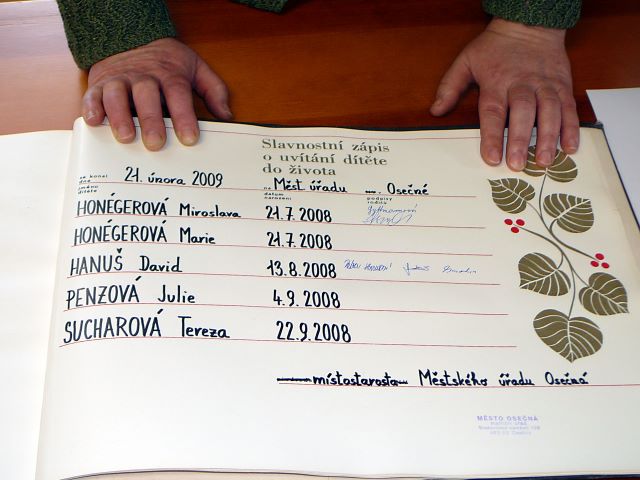 Slavnostní zápis
o uvítání dítěte
do života
se konal dne 21. února 2009 na Měst. úřadu v Osečné
jméno dítěte datum narození podpisy rodičů
HONÉGEROVÁ Miroslava 21.7.2008
HONÉGEROVÁ Marie 21.7.2008
HANUŠ David 13.8.2008
PENZOVÁ Julie 4.9.2008
SUCHAROVÁ Tereza 22.9.2008
místostarosta Městského úřadu Osečná
MĚSTO OSEČNÁ